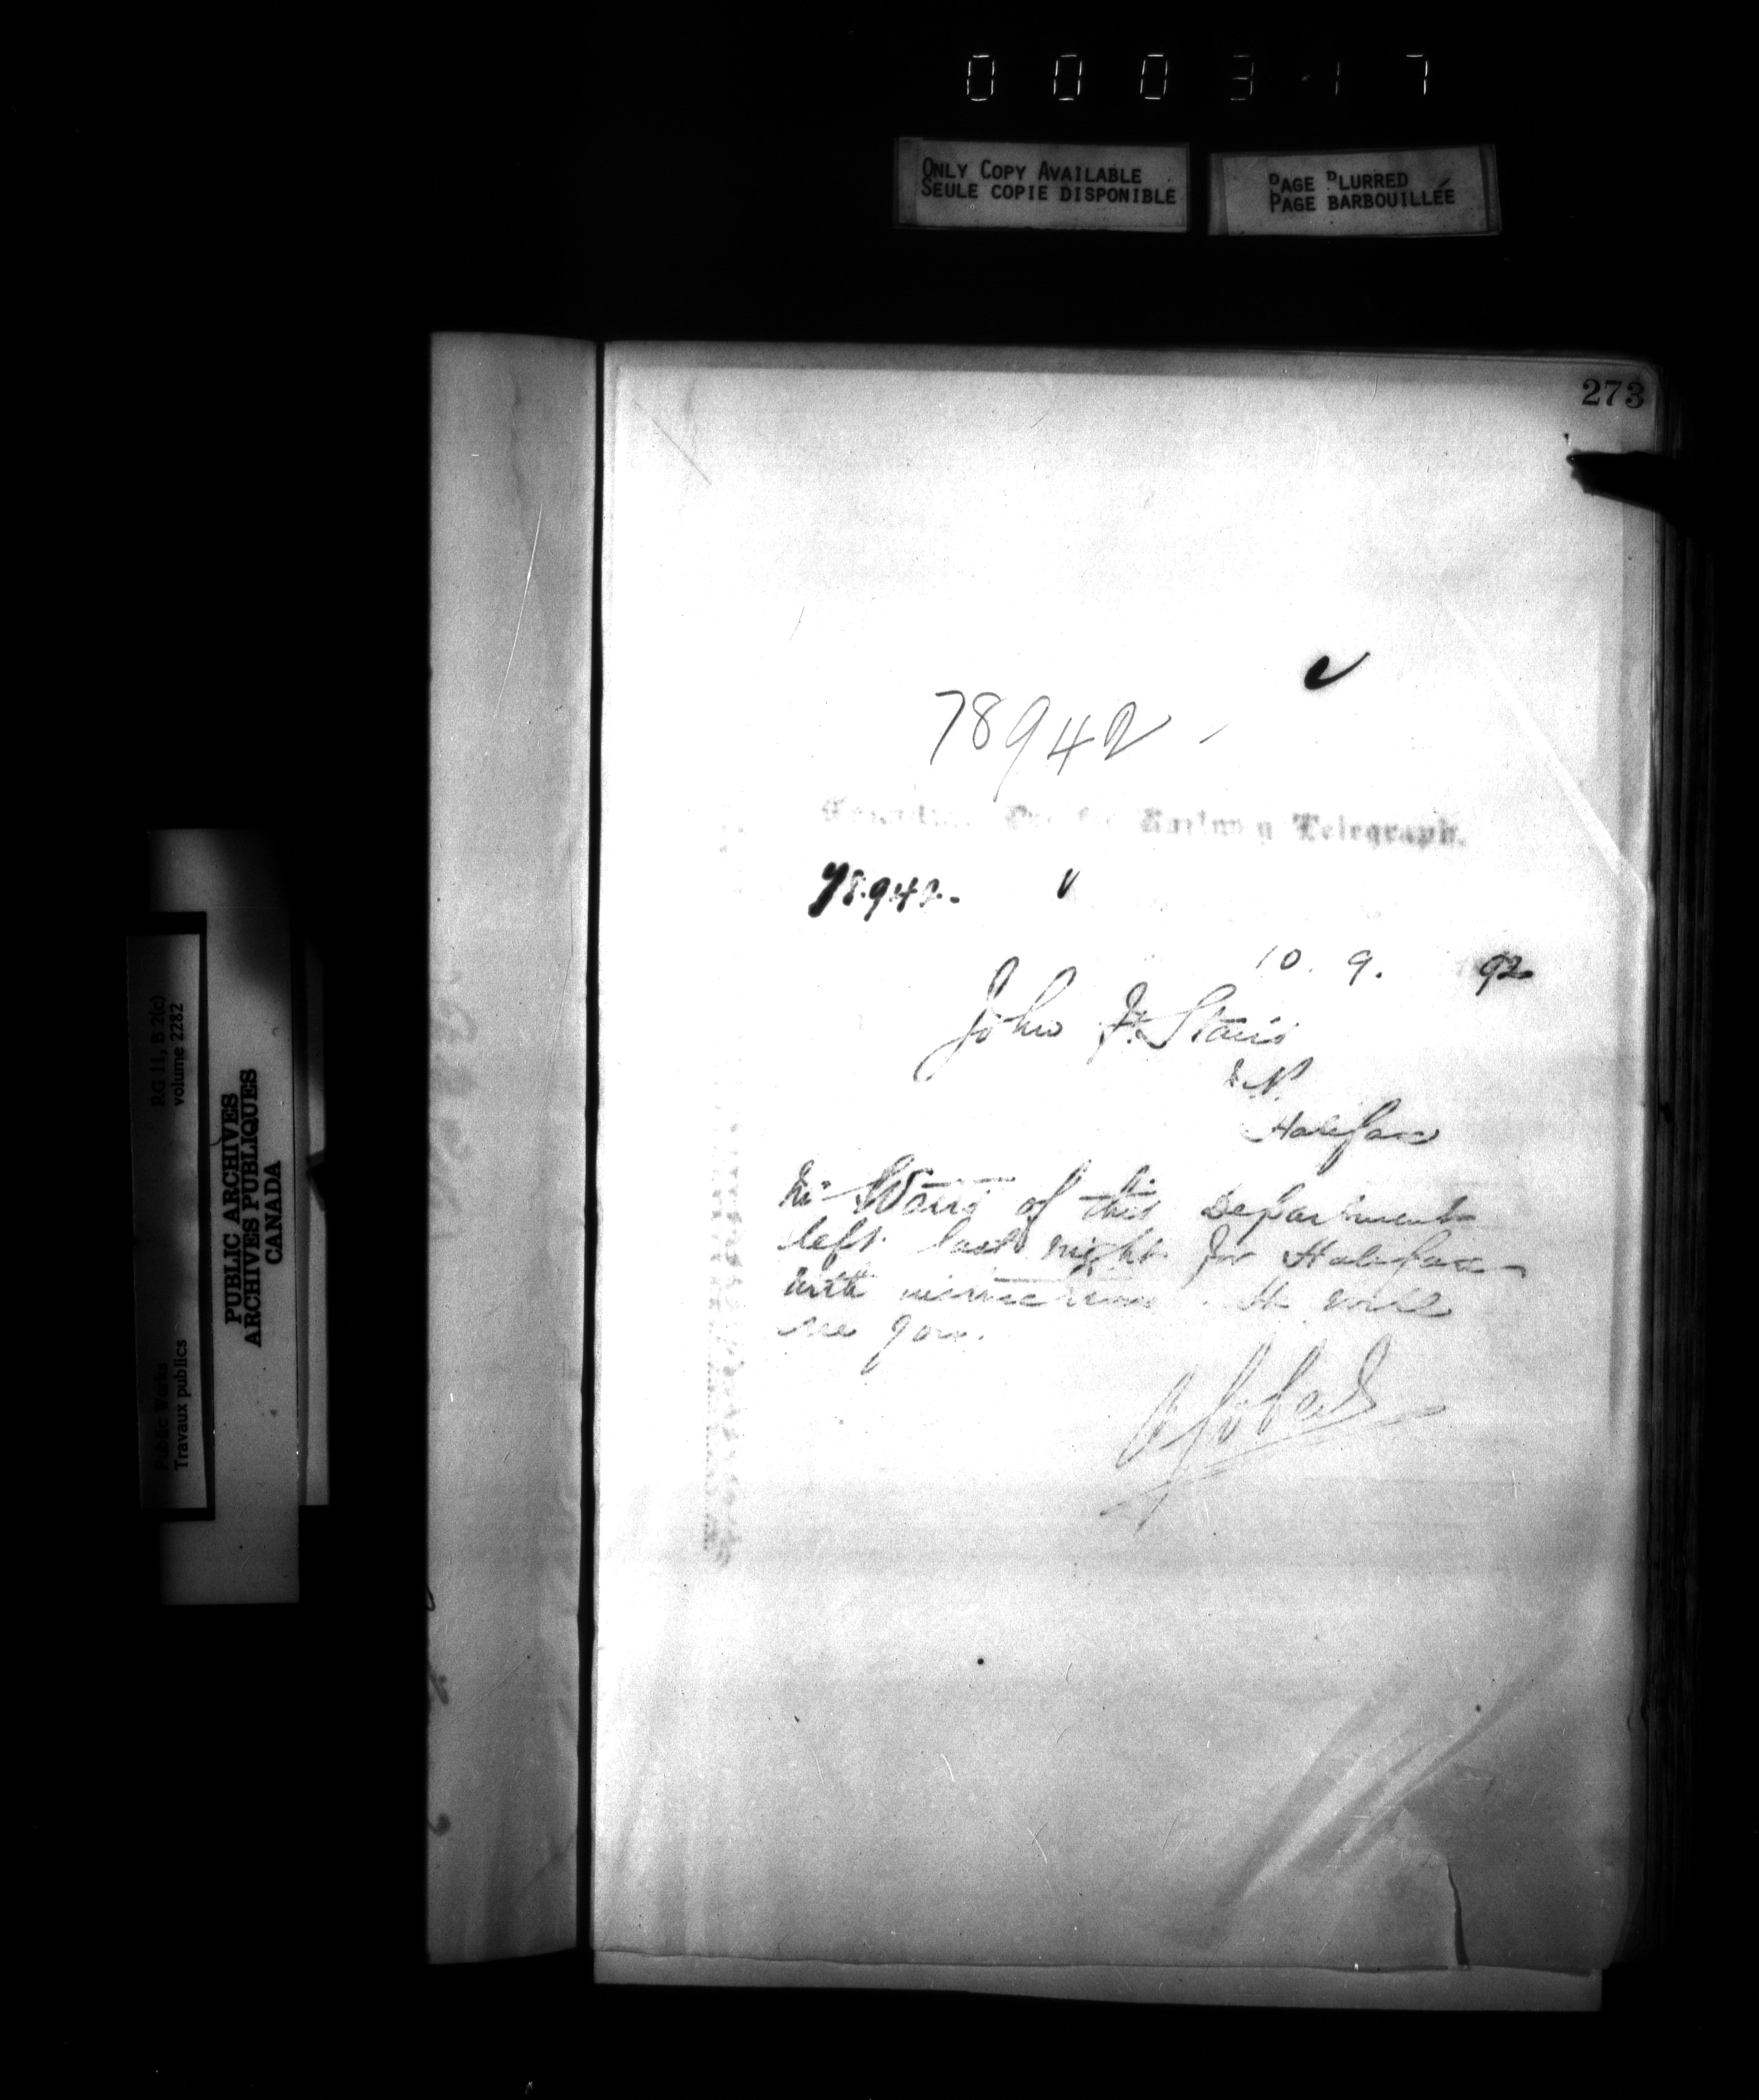 000317
ONLY COPY AVAILABLE
SEULE COPIE DISPONIBLE
PAGE BLURRED
PAGE BARBOUILLÉE
273
78942
Railway Telegraph.
78942.
10. 9. 92
John F. Stairs
Halifax
of this Department
left last night for Halifax
with instructions. He will
see you.
RG 11, B 2(c)
volume 2282
Public Works
Travaux publics
PUBLIC ARCHIVES
ARCHIVES PUBLIQUES
CANADA